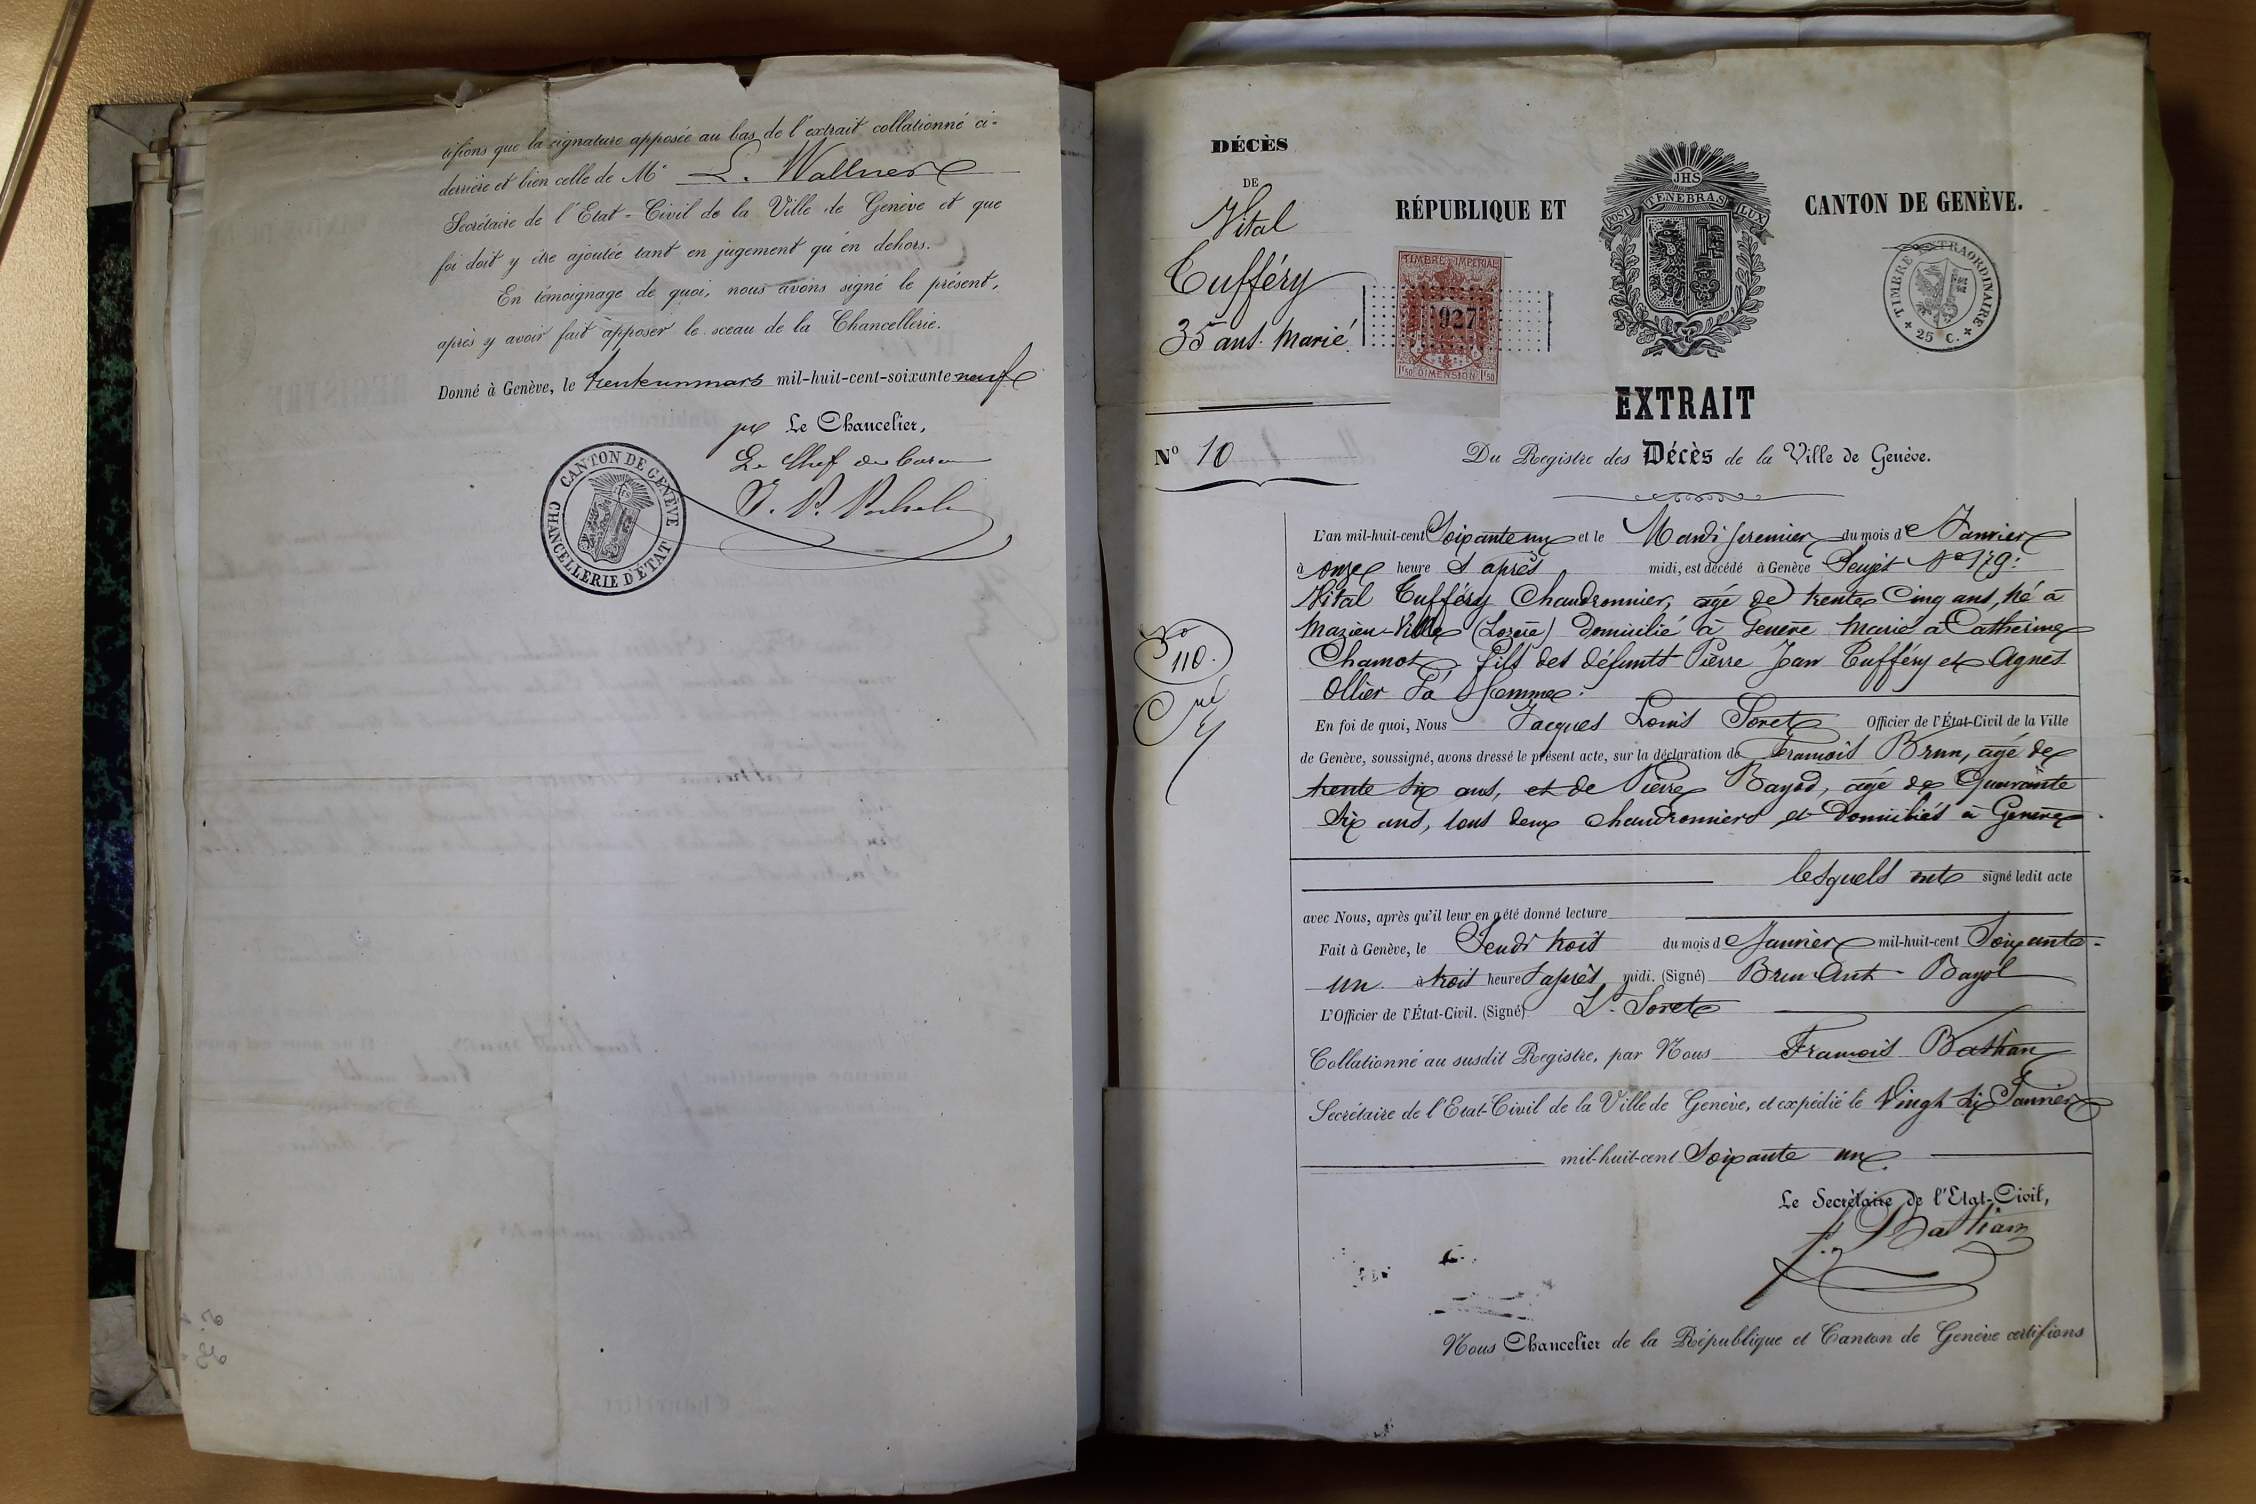 tifions que la signature apposée au bas de l'extrait collationné ci-
derrière et bien celle de Mr L. Wallner
Secrétaire de l'Etat-Civil de la Ville de Genève et que
foi doit y être ajoutée tant en jugement qu'en dehors.
En témoignage de quoi, nous avons signé le présent,
après y avoir fait apposer le sceau de la Chancellerie.
Donné à Genève, le trente un mars mil-huit-cent-soixante neuf
Le Chancelier,
Le Chef du
CANTON DE GENÈVE
CHANCELLERIE D'ÉTAT
DÉCÈS
DE
Vital
Tufféry
35 ans. Marié
No 10
No
110.
RÉPUBLIQUE ET
CANTON DE GENÈVE.
JHS
POST TENEBRAS LUX
TIMBRE IMPERIAL
927
1f50 DIMENSION 1f50
TIMBRE EXTRAORDINAIRE
25 C.
EXTRAIT
Du Registre des Décès de la Ville de Genève.
L'an mil-huit-cent Soixante un et le Mardi premier du mois de Janvier
à onze heure s après midi, est décédé à Genève No 179:
Vital Tufféry Chaudronnier, agé de trente Cinq ans, né à
Mazieu-Ville (Lozère) Domicilié à Genève Marié à Catherine
Chamot, fils des défunts Pierre Jean Tufféry et Agnès
Ollier Sa femme.
En foi de quoi, Nous Jacques Louis Soret Officier de l'État-Civil de la Ville
de Genève, soussigné, avons dressé le présent acte, sur la déclaration de François Brun, agé de
trente six ans, et de Pierre Bayol, agé de Quarante
Six ans, tous deux chaudronniers et Domiciliés à Genève
lesquels ont signé ledit acte
avec Nous, après qu'il leur en a été donné lecture
Fait à Genève, le Jeudi trois du mois de Janvier mil-huit-cent Soixante-
un à trois heure s après midi. (Signé) Brun Ant - Bayol
L'Officier de l'État-Civil. (Signé) Ls Soret
Collationné au susdit Registre, par Nous François Bastian
Secrétaire de l'Etat-Civil de la Ville de Genève, et expédié le Vingt six Janvier
mil-huit-cent Soixante un
Le Secrétaire de l'Etat-Civil,
f. Bastian
Nous Chancelier de la République et Canton de Genève certifions